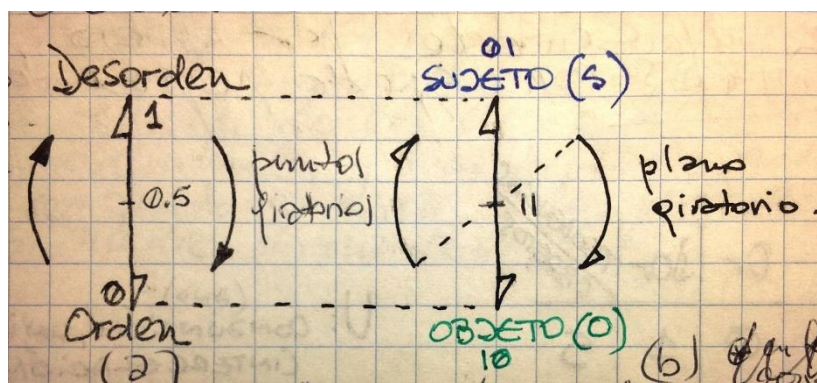 Desorden
1
0.5
0
Orden
(a)
puntos
giratorios
01
SUJETO (S)
11
OBJETO (O)
10
plano
giratorio.
(b)